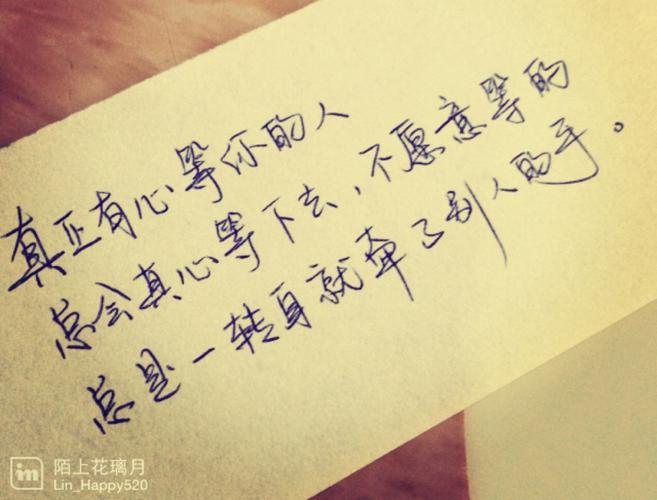 真正有心等你的人
总会真心等下去，不愿意等的
总是一转身就牵了别人的手。
in
陌上花璃月
Lin_Happy520